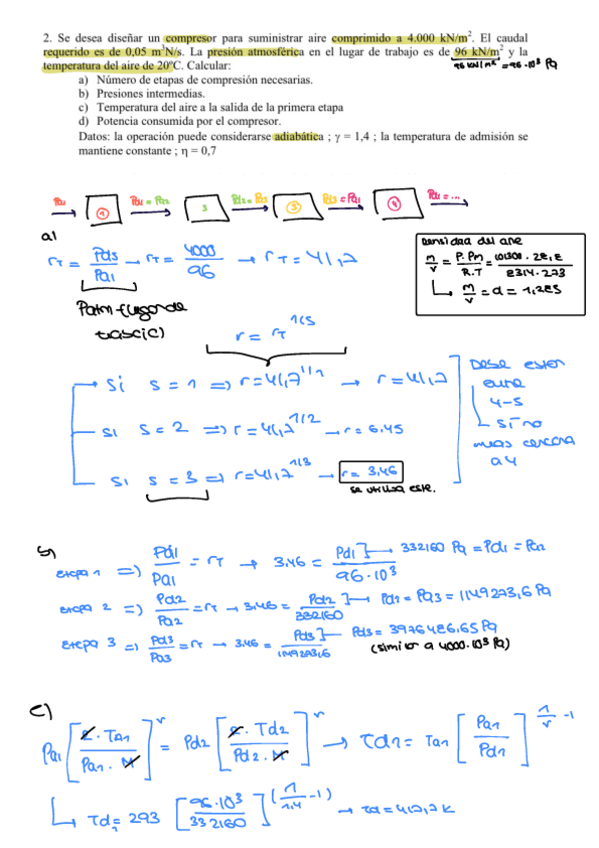 2. Se desea diseñar un compresor para suministrar aire comprimido a 4.000 kN/m². El caudal
requerido es de 0,05 m³N/s. La presión atmosférica en el lugar de trabajo es de 96 kN/m² y la
temperatura del aire de 20ºC. Calcular:
96 kN/m² = 96·10³ Pa
a) Número de etapas de compresión necesarias.
b) Presiones intermedias.
c) Temperatura del aire a la salida de la primera etapa
d) Potencia consumida por el compresor.
Datos: la operación puede considerarse adiabática ; γ = 1,4 ; la temperatura de admisión se
mantiene constante ; η = 0,7
Pa1 → 1 Pd1 = Pa2 → 2 Pd2 = Pa3 → 3 → 4 Pd4 = ...
a)
rT = Pd3/Pa1 → rT = 4000/96 → rT = 41,7
densidad del aire
m/v = P·Pm/R·T = 101300·28,8/8314·273
↳ m/v = d = 1,285
r = rT^1/s
→ si s = 1 ⇒ r = 41,7^1/1 → r = 41,7
si s = 2 ⇒ r = 41,7^1/2 → r = 6.45
si s = 3 ⇒ r = 41,7^1/3 → r = 3,46
se utiliza este.
Debe estar
entre
4-5
↳ si no
mas cercana
a 4
b)
etapa 1 ⇒ Pd1/Pa1 = rT → 3.46 = Pd1/96·10³ → 332160 Pa = Pd1 = Pa2
etapa 2 ⇒ Pd2/Pa2 = rT → 3.46 = Pd2/332160 → Pd2 = Pa3 = 1149273,6 Pa
etapa 3 ⇒ Pd3/Pa3 = rT → 3.46 = Pd3/1149273,6 → Pd3 = 3976486,65 Pa
(similar a 4000·10³ Pa)
c)
Pa1 [R·Ta1/Pa1·M]^γ = Pd2 [R·Td2/Pd2·M]^γ → Td1 = Ta1 [Pa1/Pd1]^1/γ -1
↳ Td1 = 293 [96·10³/332160]^(1/1,4 -1) → Td = 417,7 K